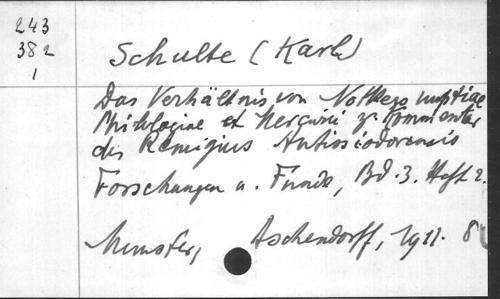 243
382
1
Schulte (Karl)
Das Verhältnis von Notkers nuptiae
Philologiae et Mercurii z. Kommentar
des Remigius Autissiodorensis
Forschungen u. Funde, Bd. 3. Heft 2.
Münster, Aschendorff, 1911. 8